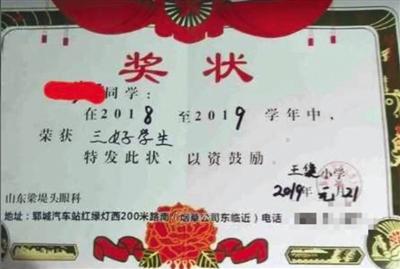 奖状
同学：
在2018至2019学年中，
荣获 三好学生
特发此状，以资鼓励
小学
2019年元月21
山东梁堤头眼科
地址：郓城汽车站红绿灯西200米路南（烟草公司东临近）电话